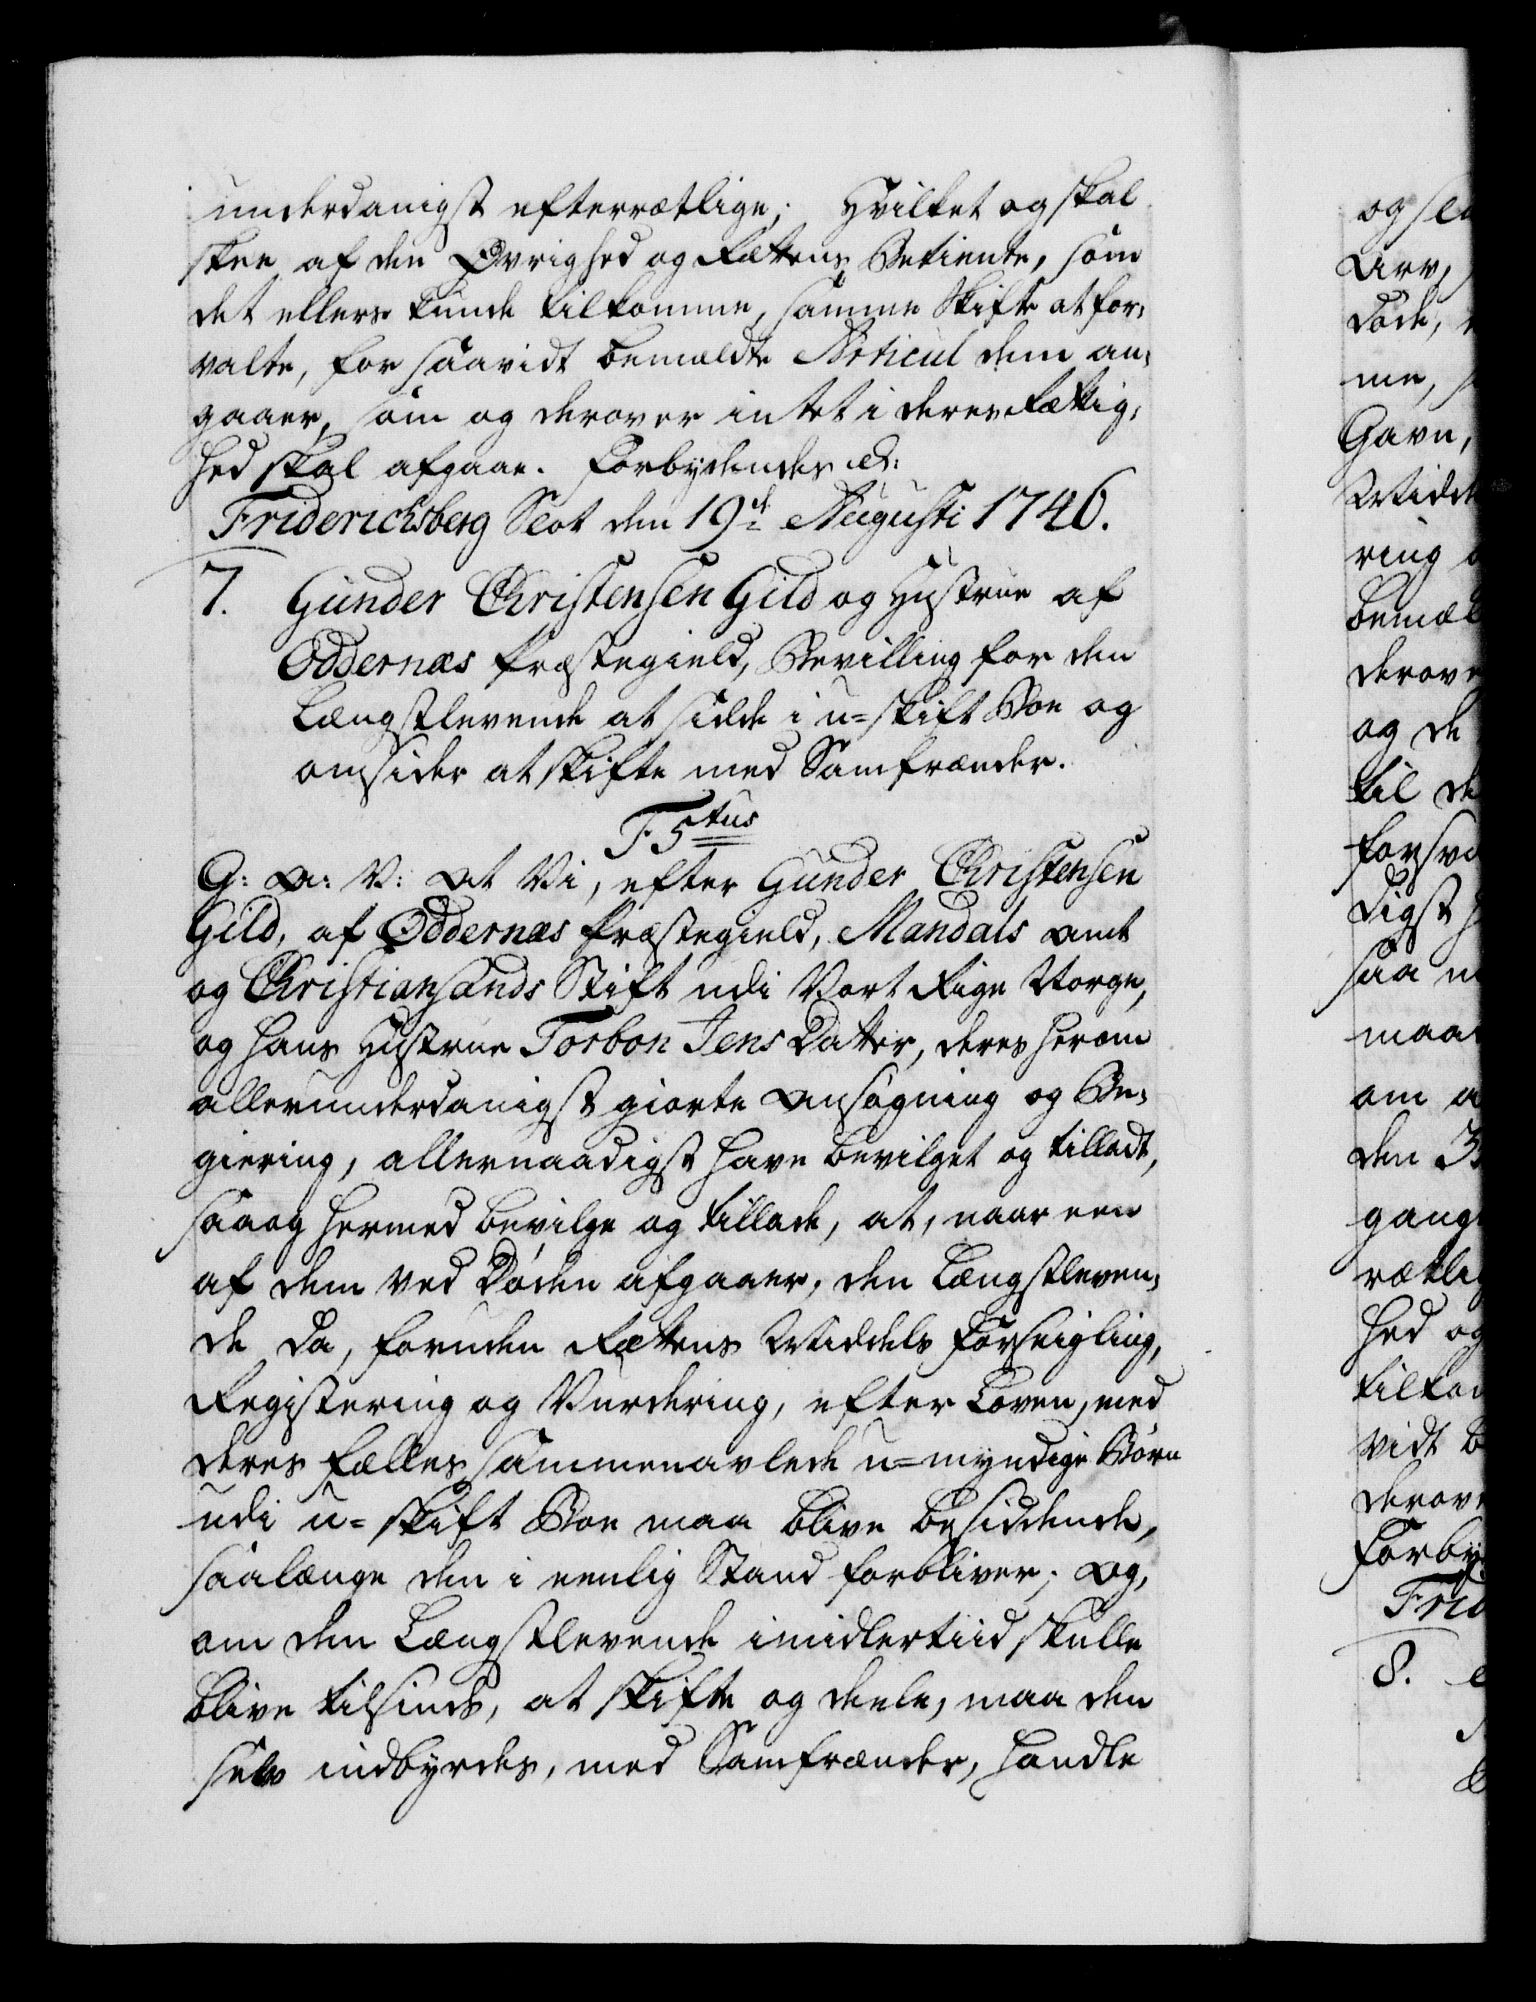 underdanigst efterrætlige; Hvilket og skal
skee af den Øvrighed og Rettens Betiente, som
det ellers kunde tilkomme, samme Skifte at for,
valte, for saavidt bemældte Articul dem an,
gaaer, som og derover intet i deres Rættig,
hed skal afgaae. Forbydendes etc:
Friderichsberg Slot den 19de Augusti 1746.
7. Gunder Christensen Gild og Hustrue af
Oddernæs Præstegield, Bevilling for den
Længstlevende at sidde i u=skift Boe og
omsider at skifte med Samfrænder.
F5tus
G: A: V: At Vi, efter Gunder Christensen
Gild, af Oddernæs Præstegield, Mandals Amt
og Christiansands Stift udi Vort Rige Norge,
og hans Hustrue Torbor Jens Datter, deres herom
allerunderdanigst giorte Ansøgning og Be,
giering, allernaadigst have bevilget og tilladt,
saa og hermed bevilge og tillade, at, naar een
af dem ved Døden afgaaer, den Længstleven,
de da, foruden Rettens Middels Forseigling,
Registering og Vurdering, efter Loven, med
deres fælles sammenavlede u=myndige Børn
udi u=skift Boe maa blive besiddende,
saalænge den i eenlig Stand forbliver; Og,
om den Længstlevende imidlertiid skulle
blive tilsinds, at skifte og deele, maa den
selv indbyrdes, med Samfrænder, handle
og
Arv,
Døde,
me,
Gavn,
Midd
ring
bemæl
derov
og de
til de
forsva
ligst
saa
maa
om
den 3
gang
rætli
hed og
tilko
vidt b
derov
Forby
Frid
8.